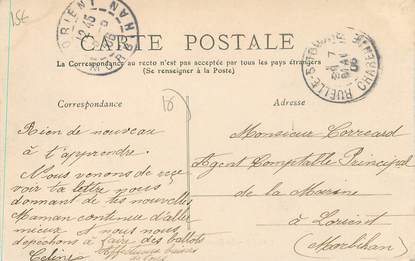 15€
LORIENT
MORBIHAN
CARTE POSTALE
La Correspondance au recto n'est pas acceptée par tous les pays étrangers
(Se renseigner à la Poste)
RUELLE
CHARENTE
Correspondance
Adresse
18
Rien de nouveau
à t'apprendre.
Nous venons de rece
voir ta lettre nous
donnant de tes nouvelles
Maman continue d'aller
mieux et nous nous
dépêchons à faire des ballots
Affectueux baisers
de tous
Céline
Monsieur Corréard
Agent Comptable Principal
de la Marine
à Lorient
(Morbihan)